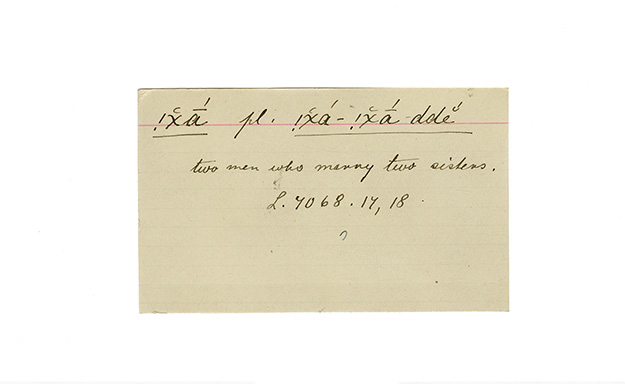 !x̆ā́ pl. !x̆á-!x̆ā́-ddĕ́
two men who marry two sisters.
L. 7068. 17, 18.
?